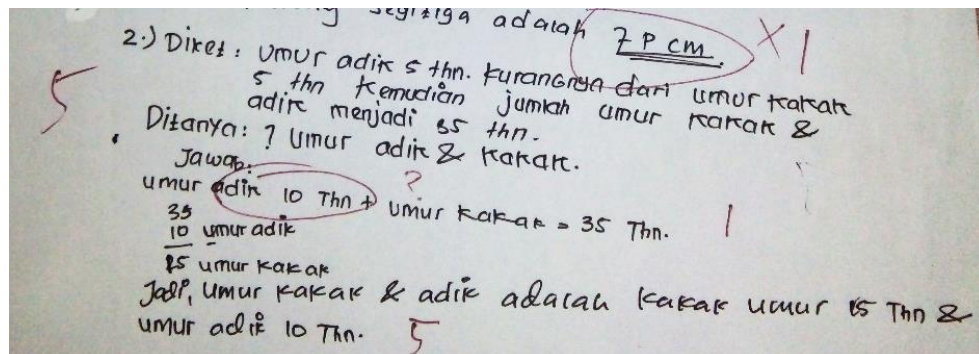 segitiga adalah 7 P cm. X 1
2.) Diket : Umur adik 5 thn. kurangnya dari umur kakak
5 5 thn kemudian jumlah umur kakak &
adik menjadi 35 thn.
Ditanya : ? Umur adik & kakak.
Jawab :
umur adik 10 Thn + umur kakak = 35 Thn. 1
?
35
10 umur adik
15 umur kakak
Jadi, umur kakak & adik adalah kakak umur 15 Thn &
umur adik 10 Thn. 5